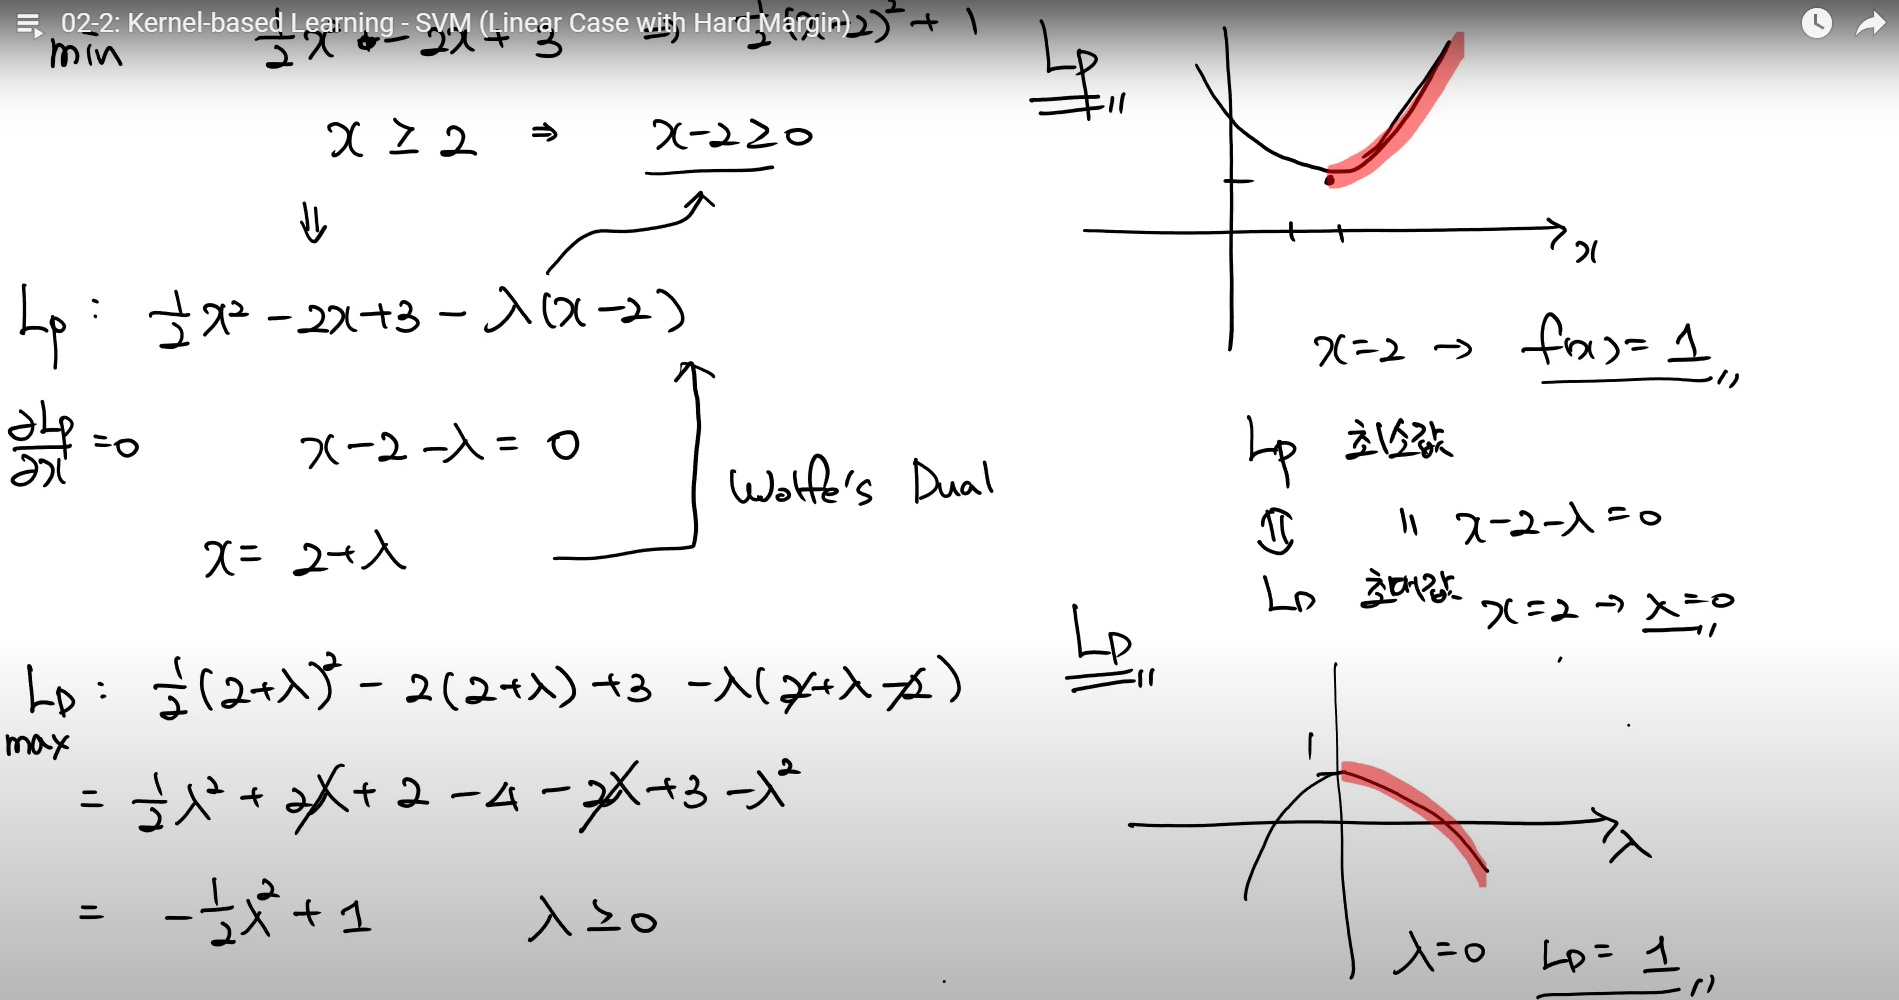 02-2: Kernel-based Learning - SVM (Linear Case with Hard Margin)
min ½x² - 2x + 3 ⇒ ½(x-2)² + 1
x ≥ 2 ⇒ x-2 ≥ 0
⇓
Lp : ½x² - 2x + 3 - λ(x-2)
∂Lp/∂x = 0 x - 2 - λ = 0
x = 2+λ
Wolfe's Dual
LD : ½(2+λ)² - 2(2+λ) + 3 - λ(2+λ-2)
max
= ½λ² + 2λ + 2 - 4 - 2λ + 3 - λ²
= -½λ² + 1 λ ≥ 0
Lp
x
x=2 → f(x) = 1
Lp 최소값
⇕ " x-2-λ=0
LD 최대값 x=2 → λ=0
LD
1
λ
λ=0 LD = 1